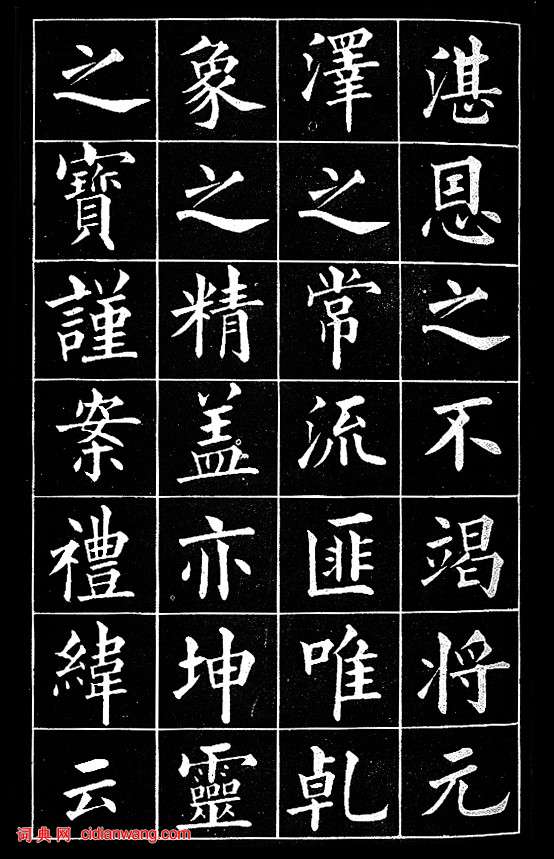 湛恩之不竭将元
澤之常流匪唯乹
象之精盖亦坤靈
之寶謹案禮緯云
词典网 cidianwang.com